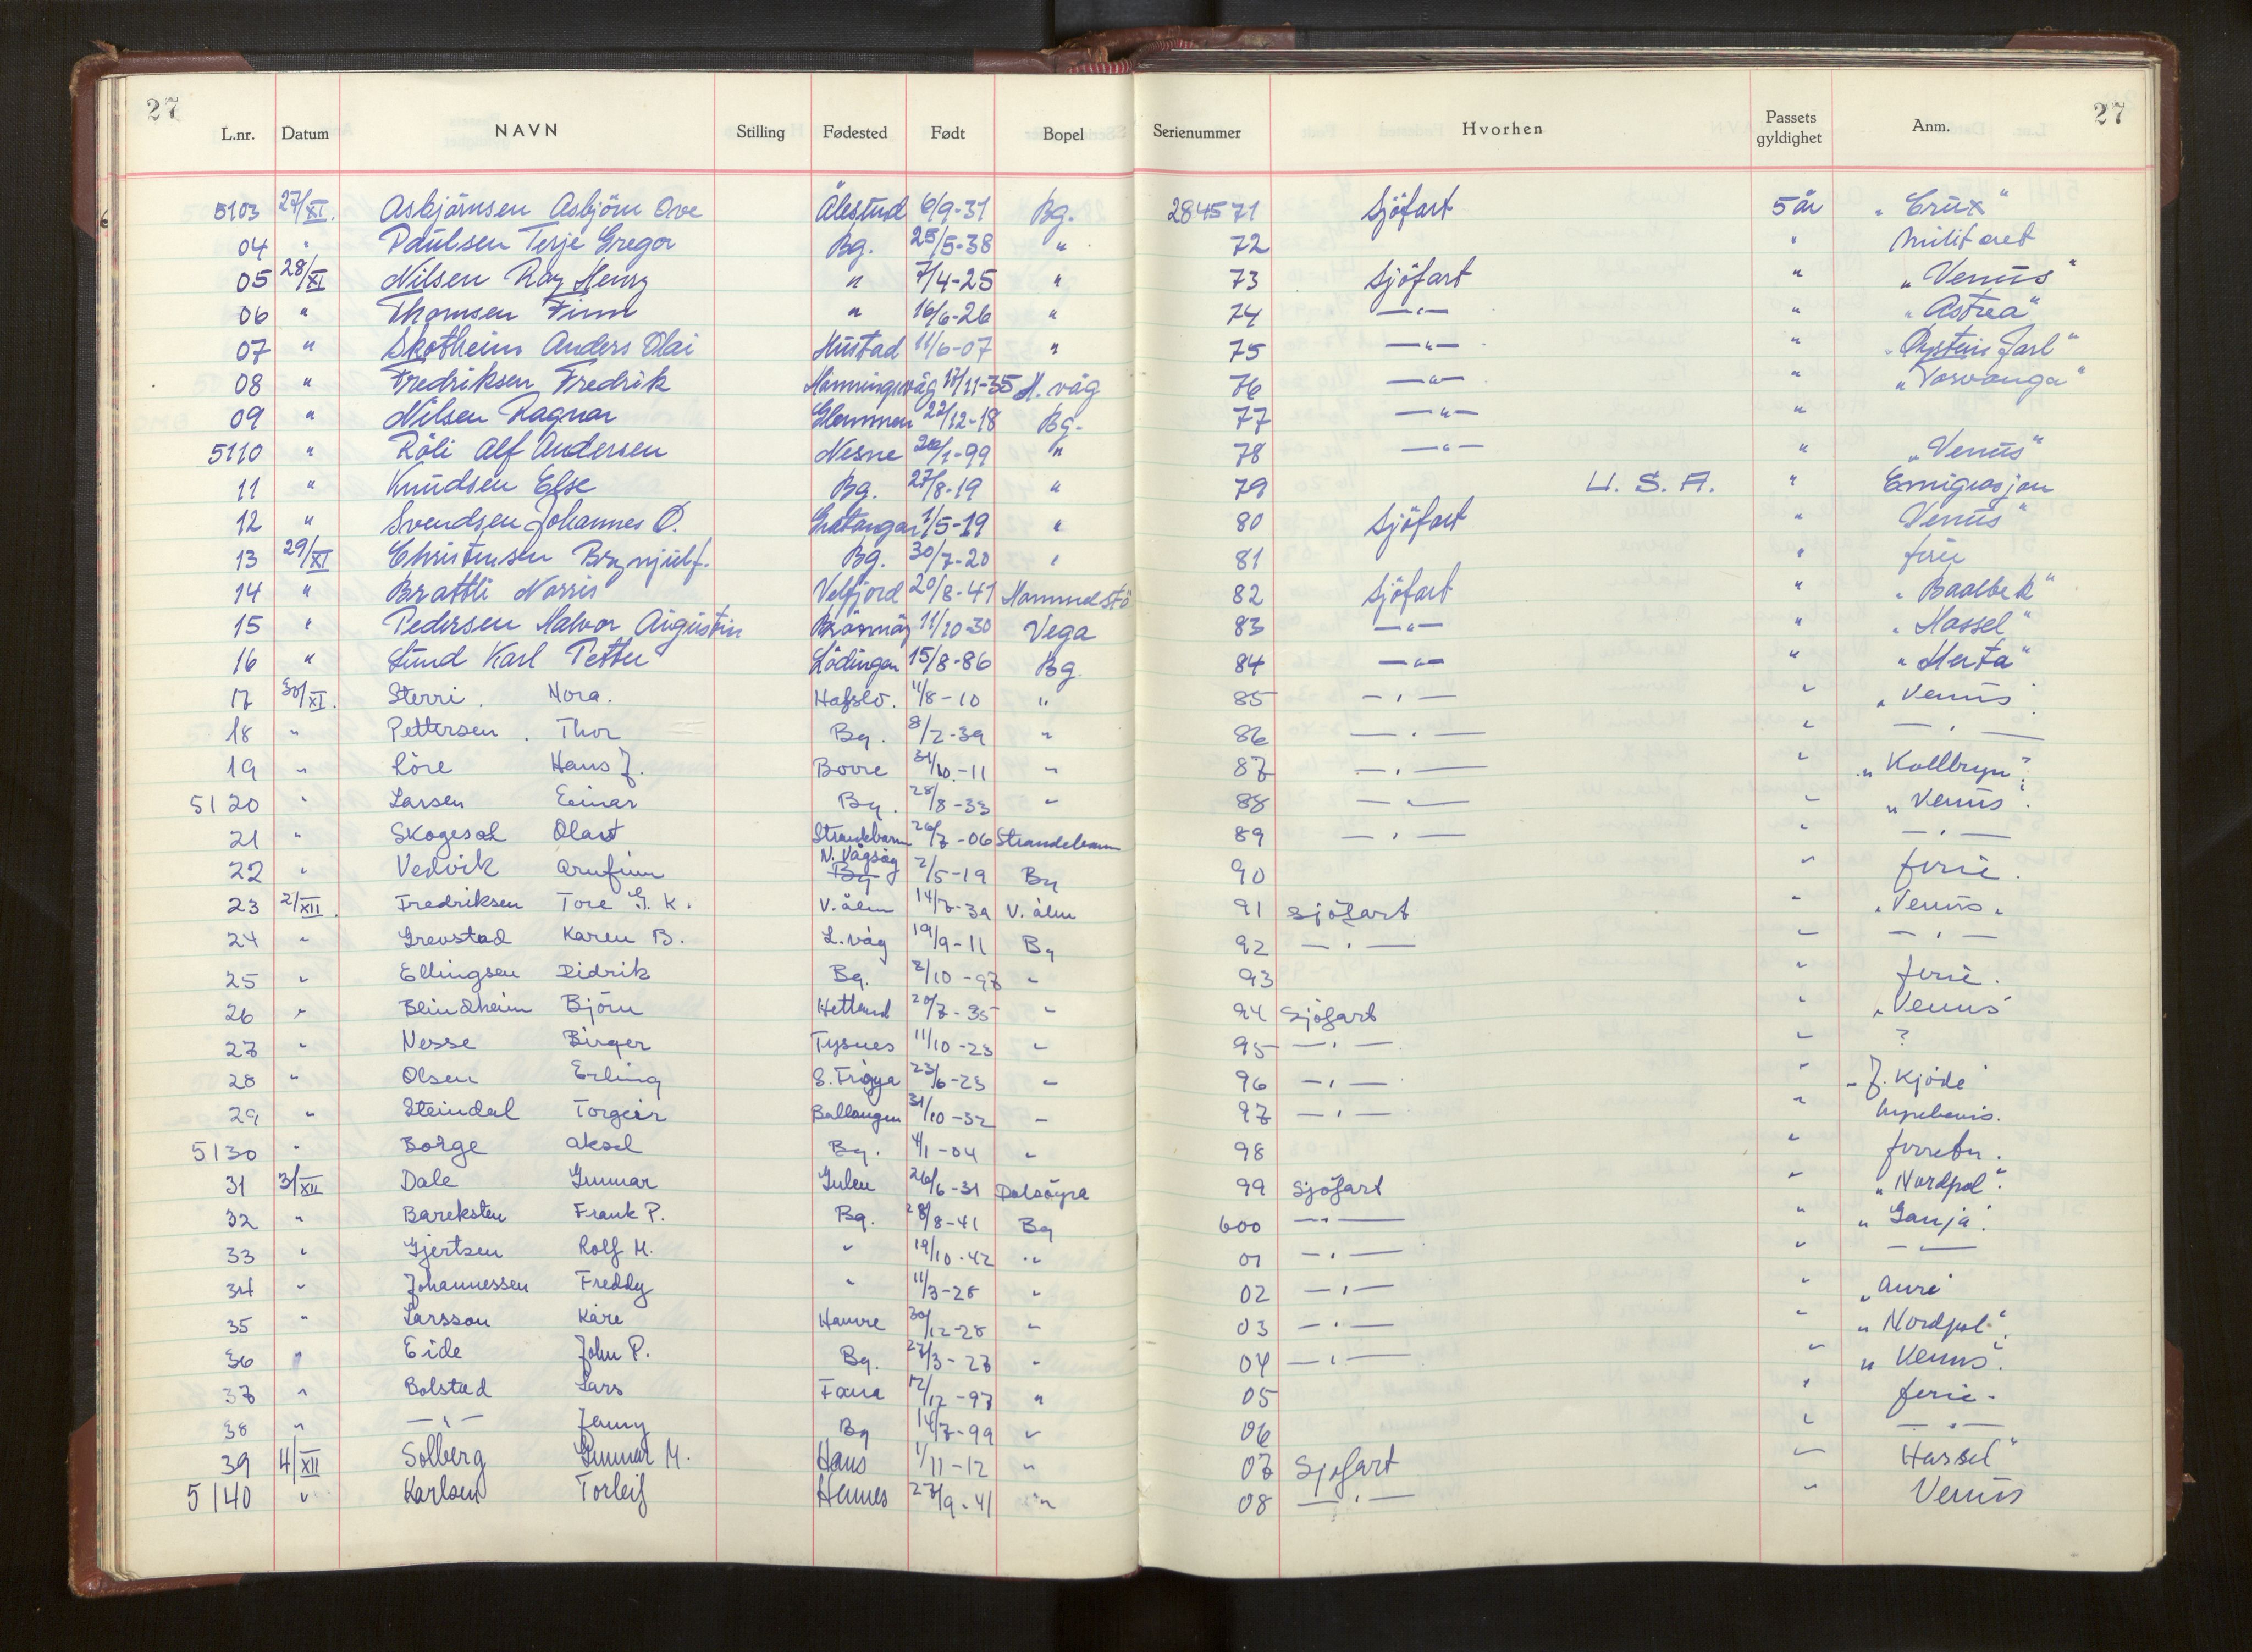 27 27
L.nr. Datum NAVN Stilling Fødested Født Bopel Serienummer Hvorhen Passets gyldighet Anm.
5103 27/XI. Asbjörnsen Asbjörn Ove Ålestrud 6/9-31 Bg. 284571 Sjöfart 5 år "Crux"
04 " Paulsen Terje Gregor Bg. 25/5-38 " 72 " Militæret
05 28/XI Nilsen Roy Henry " 7/4-25 " 73 Sjöfart " "Venus"
06 " Thomsen Finn " 16/6-26 " 74 —"— " "Astrea"
07 " Skotheim Anders Olai Hustad 11/6-07 " 75 —"— " "Øystein Jarl"
08 " Fredriksen Fredrik Honningsvåg 17/11-35 H. våg 76 —"— " "Vosvanga"
09 " Nilsen Ragnar Glemmen 22/12-18 Bg. 77 —"— "
5110 " Röli Alf Andersen Nesne 26/1-99 " 78 —"— " "Venus"
11 " Knudsen Else Bg. 27/8-19 " 79 U.S.A. " Emigrasjon
12 " Svendsen Johannes O. Gratangen 1/5-19 " 80 Sjöfart " Venus"
13 29/XI Christensen Brynjulf. Bg. 30/7-20 " 81 " ferie
14 " Brattli Norris Velfjord 20/8-41 Hommelstö 82 Sjöfart " "Baalbek"
15 " Pedersen Halvor Augustin Brönnöy 11/10-30 Vega 83 —"— " "Hassel"
16 " Lund Karl Petter Lödingen 15/8-86 Bg. 84 —"— " "Herta"
17 30/XI. Sterri. Nora. Hafslo. 11/8-10 " 85 —"— " "Venus"
18 " Pettersen. Thor Bg. 8/2-39 " 86 —"— " —"—
19 " Löre Hans J. Bovre 31/10.-11 " 87 —"— " "Kollbryn".
5120 " Larsen Einar Bg. 28/8-33 " 88 —"— " "Venus".
21 " Skogesal Olav Strandebarm 26/7-06 Strandebarm 89 —"— " —"—
22 " Vedvik Arnfinn N. Vågsöy Bg 2/5-19 Bg 90 " ferie.
23 2/XII. Fredriksen Tore G. K. V. ålm 14/7-39 V. ålm 91 Sjöfart " "Venus"
24 " Grevstad Karen B. L. våg 19/9-11 Bg 92 —"— " —"—
25 " Ellingsen Didrik Bg. 2/10-97 " 93 " ferie.
26 " Blindheim Björn Hetland 20/7-35 " 94 Sjöfart " "Venus"
27 " Nesse Birger Tysnes 11/10-23 " 95 —"— " ?
28 " Olsen Erling S. Fröya 23/6-23 " 96 —"— " "J. Kjöde"
29 " Steindal Torgeir Ballangen 31/10-32 " 97 —"— " hyrebevis.
5130 " Borge Aksel Bg. 4/1-04 " 98 " forretn.
31 3/XII Dale Gunnar Gulen 26/6-31 Dalsöyra 99 Sjöfart " "Nordpol".
32 " Bareksten Frank P. Bg. 28/8-41 Bg 600 —"— " "Ganja".
33 " Gjertsen Rolf H. " 19/10-42 " 01 —"— " —"—
34 " Johannessen Freddy " 11/3-28 " 02 —"— " "Auri"
35 " Larsson Kåre Hamre 30/12-28 " 03 —"— " "Nordpol".
36 " Eide John P. Bg. 27/3-27 " 04 —"— " "Venus".
37 " Bolstad Lars Fana 12/12-97 " 05 " ferie.
38 " —"— Jenny Bg 14/7-99 " 06 " —"—
39 4/XII Solberg Gunnar M. Haus 1/11-12 " 07 Sjøfart " Hassel"
5140 " Karlsen Torleif Hemnes 27/9-41 " 08 —"— " Venus